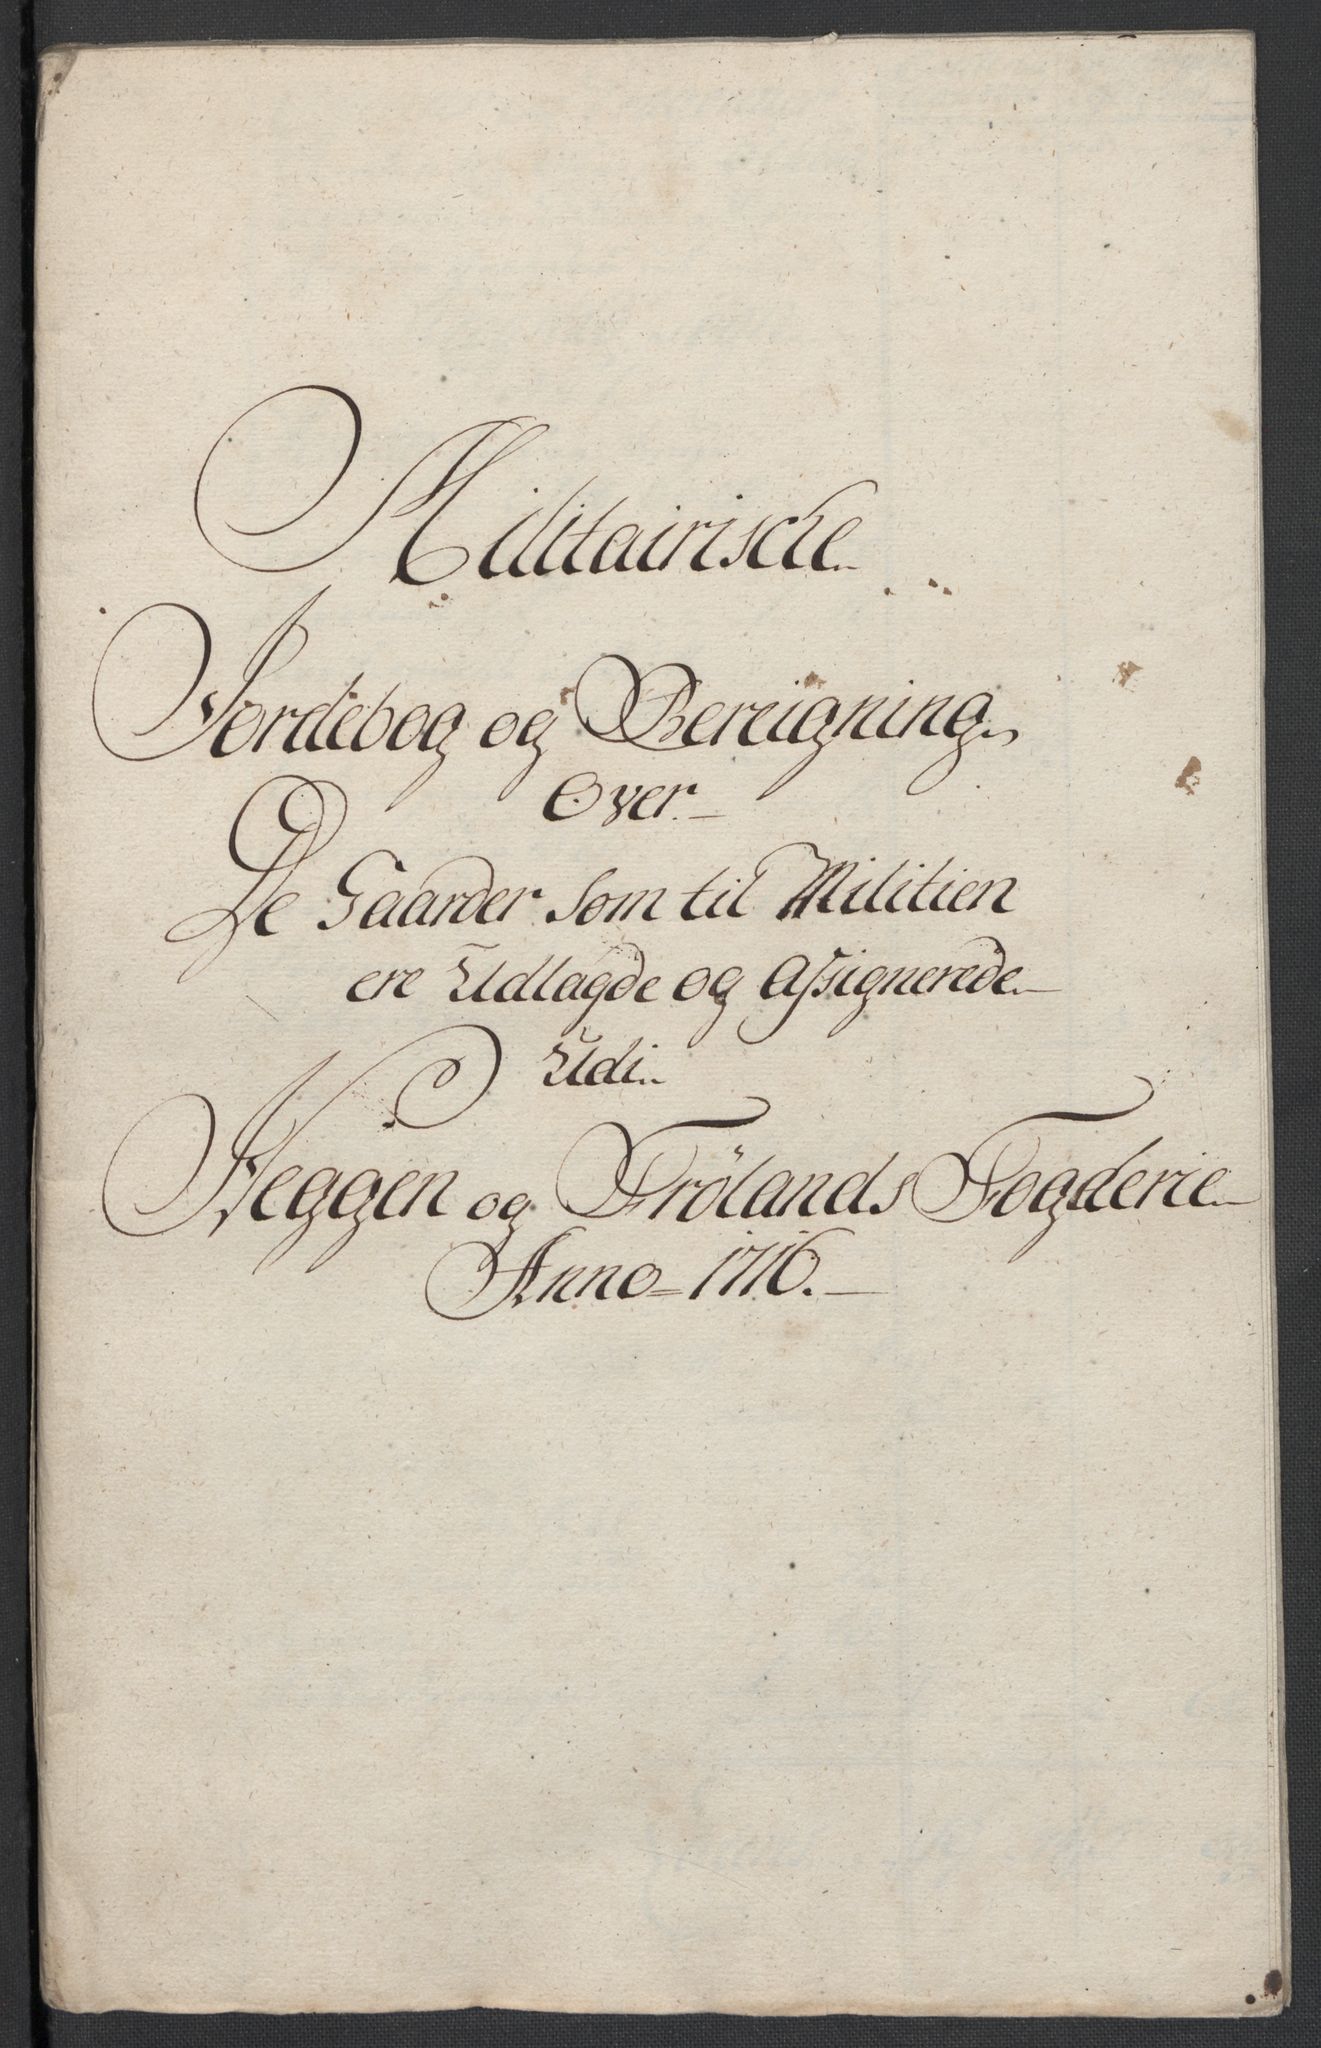 Militairische
Jordebog og Bereigning
Over
De Gaarder som til Militien
ere Udlagde og Assignerede
Udi
Heggen og Frölands Fogderie
Anno 1716.